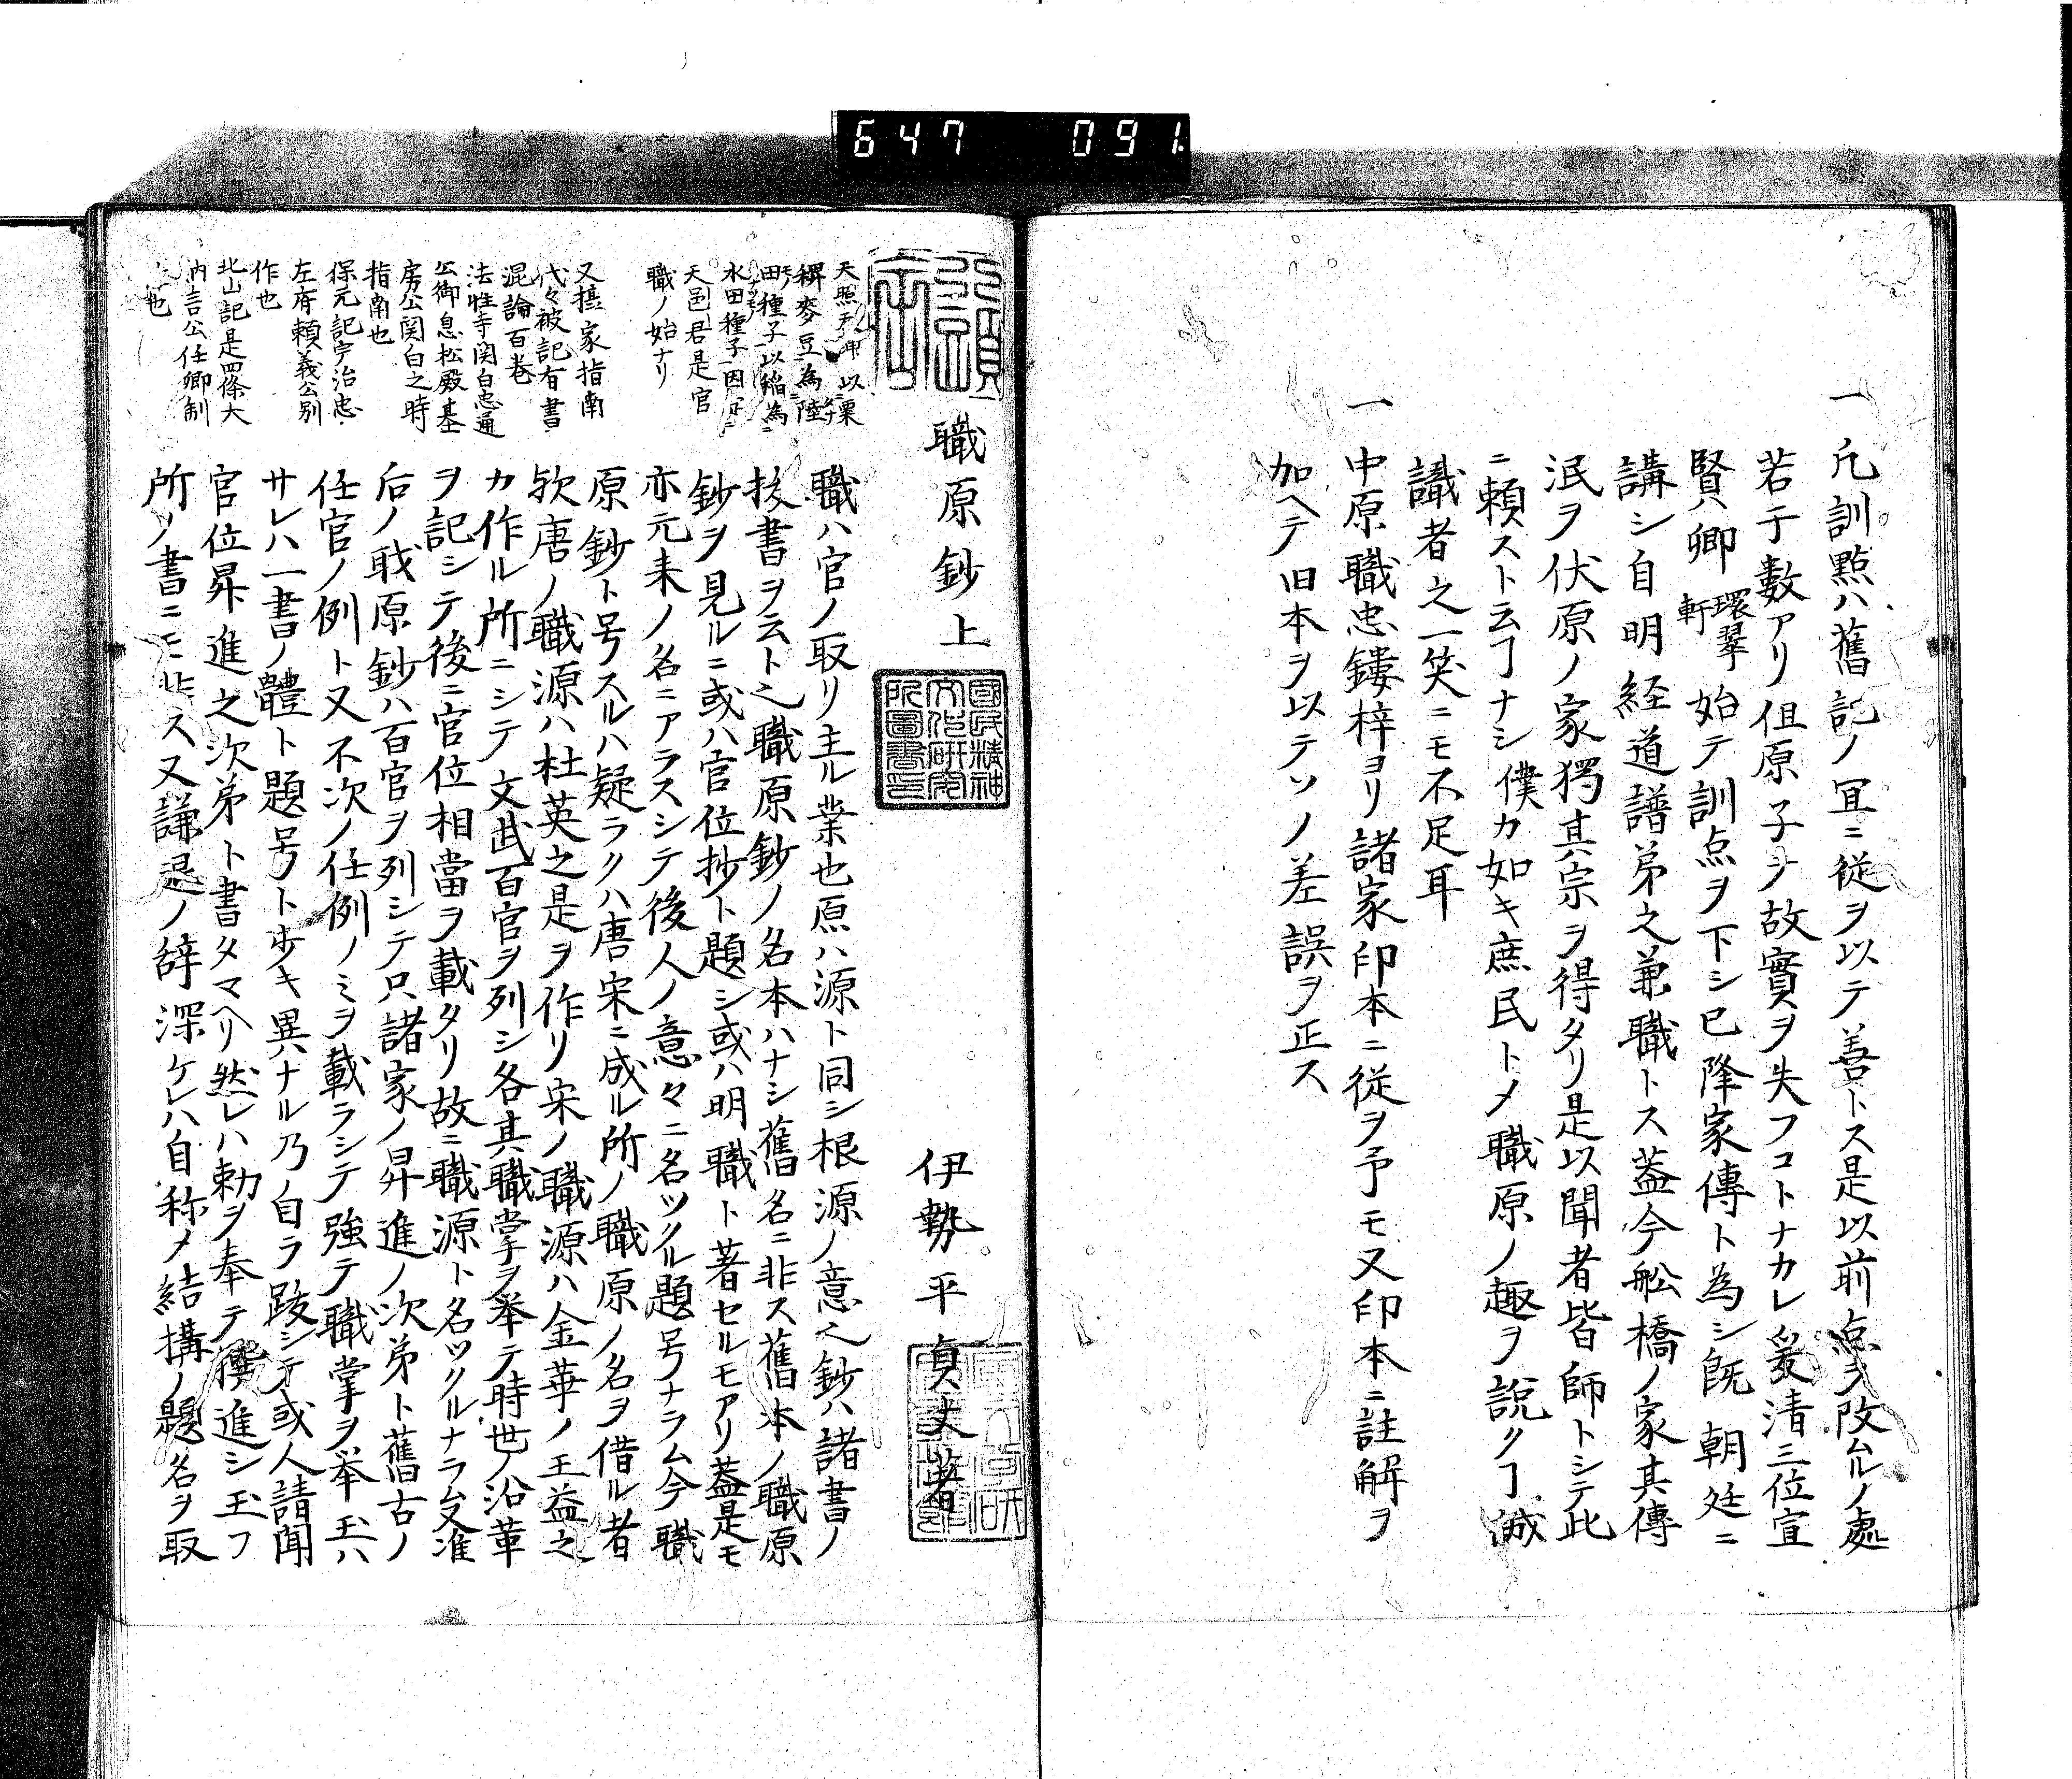 647 091
一 凡訓點ハ舊記ノ宜ニ從ヲ以テ善トス是以前点ヲ改ムルノ處
若干數アリ但原子シ故實ヲ失フコトナカレ爰清三位宣
賢卿 環翠軒 始テ訓点ヲ下シ已降家傳ト為シ既 朝廷ニ
講シ自明経道譜弟之兼職トス蓋今舩橋ノ家其傳
泯ヲ伏原ノ家獨其宗ヲ得タリ是以聞者皆師トシテ此
ニ頼スト云ヿナシ僕カ如キ庶民トメ職原ノ趣ヲ説クヿ誠
識者之一笑ニモ不足耳
一 中原職忠鏤梓ヨリ諸家印本ニ従ヲ予モ又印本ニ註解ヲ
加ヘテ旧本ヲ以テソノ差誤ヲ正ス
職原鈔上
伊勢平貞丈著
國民精神
文化研究
所圖書印
天照 以粟
稗麥豆為陸
田種子以稲為
水田種子因定
天邑君是官
職ノ始ナリ
又摂家指南
代々被記有書
混論百巻
法性寺関白忠通
公御息松殿基
房公関白之時
指南也
保元記宇治忠
左府頼義公別
作也
北山記是四條大
納言公任卿制
也
職ハ官ノ取リ主ル業也原ハ源ト同シ根源ノ意也鈔ハ諸書ノ
抜書ヲ云ト也職原鈔ノ名本ハナシ舊名ニ非ス舊本ノ職原
鈔ヲ見ルニ或ハ官位抄ト題シ或ハ明職ト著セルモアリ蓋是モ
亦元来ノ名ニアラスシテ後人ノ意々ニ名ツクル題号ナラム今職
原鈔ト号スルハ疑ラクハ唐宋ニ成ル所ノ職原ノ名ヲ借ル者
欤唐ノ職源ハ杜英之是ヲ作リ宋ノ職源ハ金華ノ王益之
カ作ル所ニシテ文武百官ヲ列シ各其職掌ヲ挙テ時世ノ沿革
ヲ記シテ後ニ官位相當ヲ載タリ故ニ職源ト名ツクルナラム准
后ノ職原鈔ハ百官ヲ列シテ只諸家ノ昇進ノ次第ト舊古ノ
任官ノ例ト又不次ノ任例ノミヲ載ラシテ強テ職掌ヲ挙玉ハ
サレハ一書ノ體ト題号ト少キ異ハナル乃ノ自ラ跋シテ或人請聞
官位昇進之次第ト書タマヘリ然レハ勅ヲ奉テ撰進シ玉フ
所ノ書ニモ非ス又謙退ノ辞深ケレハ自称メ結構ノ題名ヲ取